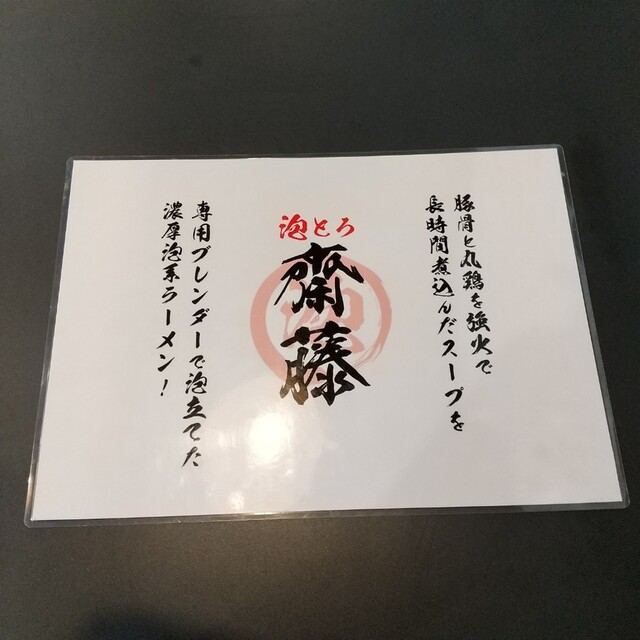 豚骨と丸鶏を強火で
長時間煮込んだスープを
泡とろ
齋藤
専用ブレンダーで泡立てた
濃厚泡系ラーメン!